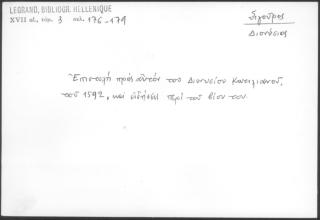 LEGRAND, BIBLIOGR. HELLENIQUE
XVII αἰ., τόμ. 3 σελ. 176-179
Σιγοῦρος
Διονύσιος
Ἐπιστολὴ πρὸς αὐτὸν τοῦ Διονυσίου Κατιλιανοῦ,
τοῦ 1592, καὶ εἰδήσεις περὶ τοῦ βίου του.